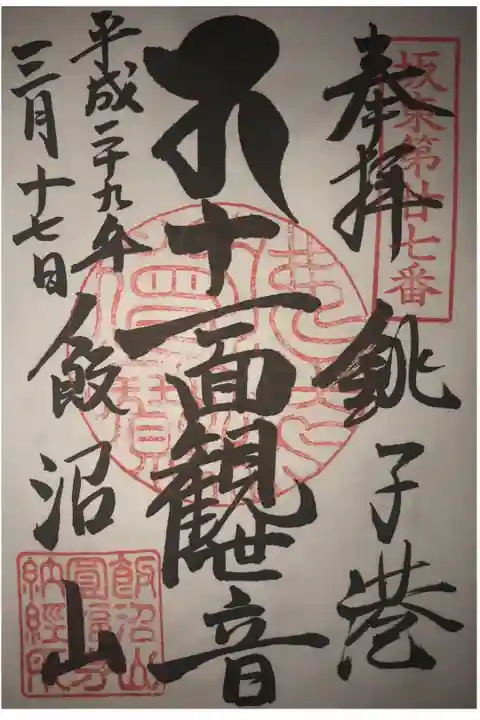 奉拝
坂東第廿七番
銚子港
十一面観世音
平成二十九年
三月十七日
飯沼山
飯沼山
圓福寺
納経所